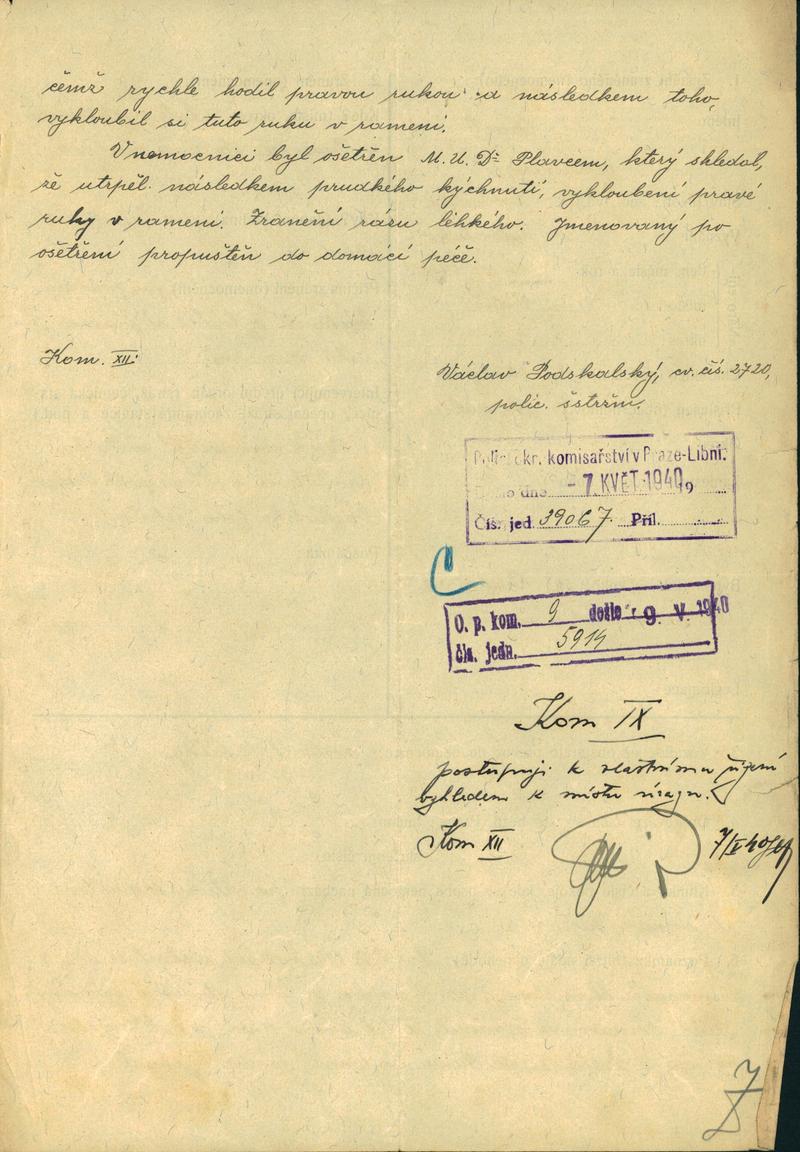 čemž rychle hodil pravou rukou a následkem toho,
vykloubil si tuto ruku v rameni.
V nemocnici byl ošetřen M. U. Dr Plavcem, který shledal,
že utrpěl následkem prudkého kýchnutí, vykloubení pravé
ruky v rameni. Zranění rázu lehkého. Jmenovaný po
ošetření propuštěn do domácí péče.
Kom. XII.
Václav Podskalský, cv. čís. 2720,
polic. šstržm.
okr. komisařství v Praze-Libni:
dne - 7. KVĚT. 1940 9
Čís. jed. 39067. Příl.
C
O. p. kom. 9 došlo 9. V. 1940
čís. jedn. 5914
Kom IX
postupuji k vlastnímu řízení
vzhledem k místu úrazu.
Kom XII 7/V 40
Z